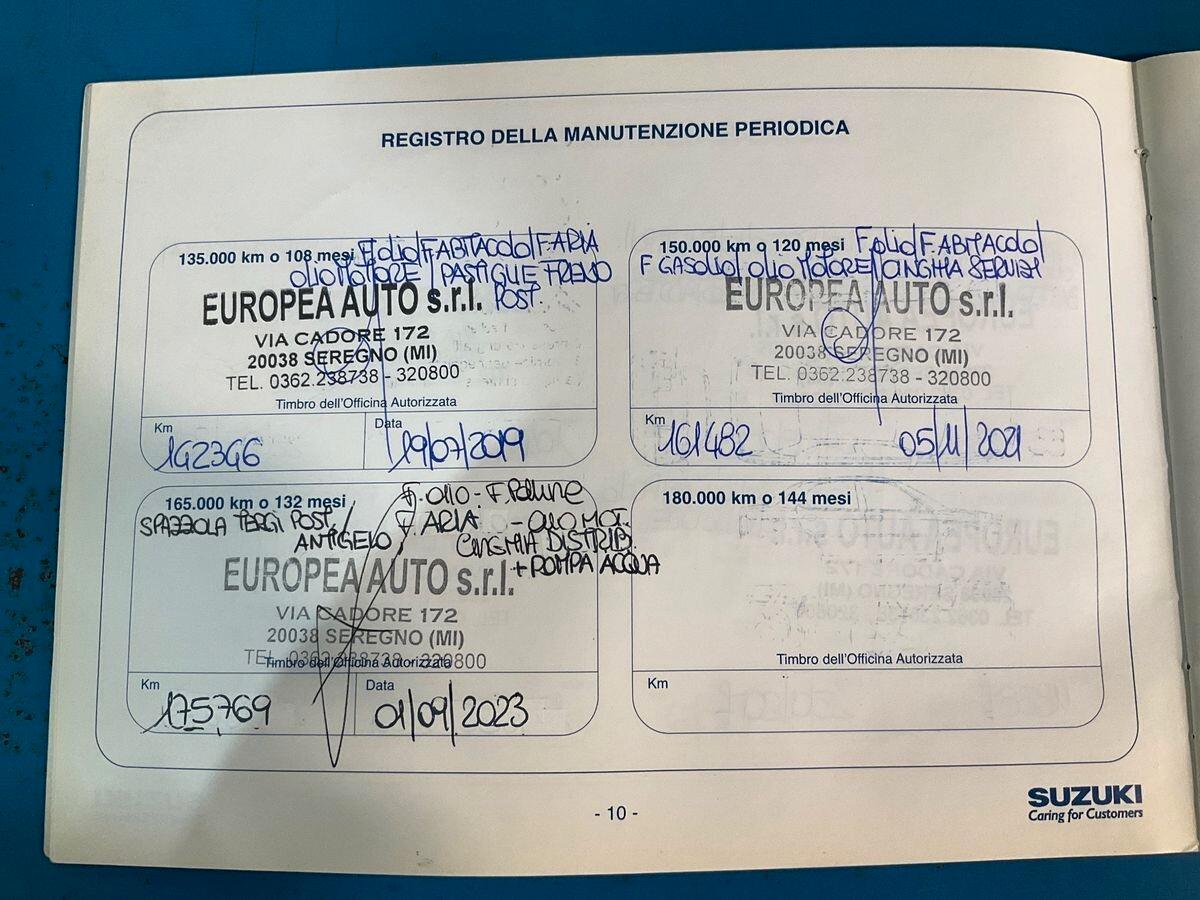 REGISTRO DELLA MANUTENZIONE PERIODICA
135.000 km o 108 mesi F.olio/F.ABITACOLO/F.ARIA
OLIO MOTORE / PASTIGLIE FRENO
POST.
EUROPEA AUTO s.r.l.
VIA CADORE 172
20038 SEREGNO (MI)
TEL. 0362.238738 - 320800
Timbro dell'Officina Autorizzata
Km
142346
Data
19/07/2019
150.000 km o 120 mesi F.olio/F.ABITACOLO/
F GASOLIO/ OLIO MOTORE/ CINGHIA SERVIZI
EUROPEA AUTO s.r.l.
VIA CADORE 172
20038 SEREGNO (MI)
TEL. 0362.238738 - 320800
Timbro dell'Officina Autorizzata
Km
161482
05/11/2021
165.000 km o 132 mesi F.OLIO - F.Polline
SPAZZOLA TERGI POST/ F.ARIA - OLIO MOT.
ANTIGELO/ CINGHIA DISTRIB.
+ POMPA ACQUA
EUROPEA AUTO s.r.l.
VIA CADORE 172
20038 SEREGNO (MI)
TEL. 0362.238738 - 320800
Timbro dell'Officina Autorizzata
Km
175769
Data
01/09/2023
180.000 km o 144 mesi
Timbro dell'Officina Autorizzata
Km
- 10 -
SUZUKI
Caring for Customers